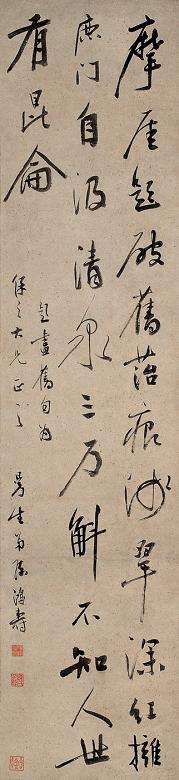 摩厓題破舊苔痕淺翠深紅擁
门自汲清泉三万斛不知人世
有昆侖
題畫舊句为
保之大兄正之
曼生弟陳鴻壽